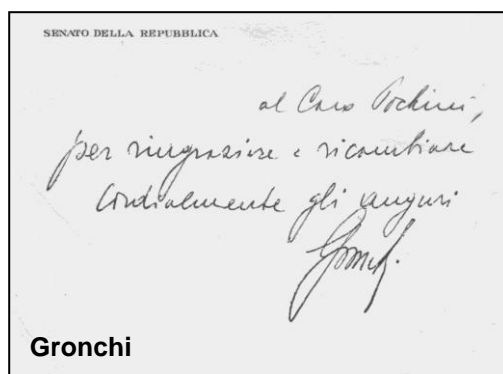 SENATO DELLA REPUBBLICA
al Caro Pochini,
per ringraziare e ricambiare
cordialmente gli auguri
Gronchi
Gronchi